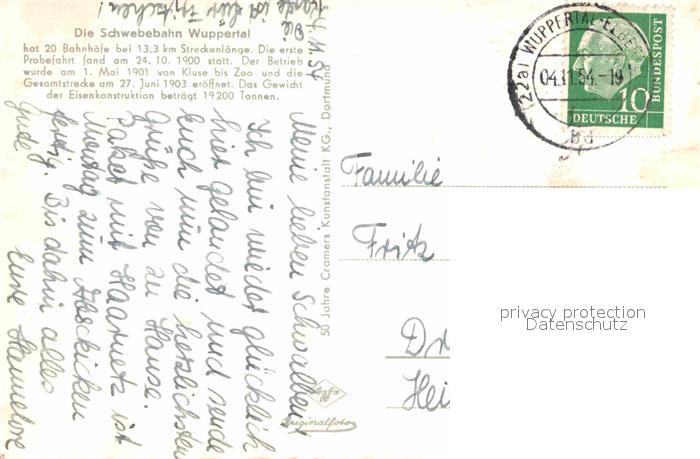 Die Schwebebahn Wuppertal
hat 20 Bahnhöfe bei 13,3 km Streckenlänge. Die erste
Probefahrt fand am 24. 10. 1900 statt. Der Betrieb
wurde am 1. Mai 1901 von Kluse bis Zoo und die
Gesamtstrecke am 27. Juni 1903 eröffnet. Das Gewicht
der Eisenkonstruktion beträgt 19200 Tonnen.
Die
Karte ist für Fritzchen!
4. 11. 54
Meine lieben Schwalben!
Ich bin wieder glücklich
hier gelandet und sende
Euch nun die herzlichsten
Grüße von zu Hause.
Paket mit Haarnetz ist
Montag zum Abschicken
fertig. Bis dahin alles
Gute
Eure Hannelore
50 Jahre Cramers Kunstanstalt KG., Dortmund
Agfa
Originalfoto
(22a) WUPPERTAL-ELBE
04.11.54.-19
bd
10
DEUTSCHE
BUNDESPOST
Familie
Fritz
Dr
Hei
privacy protection
Datenschutz